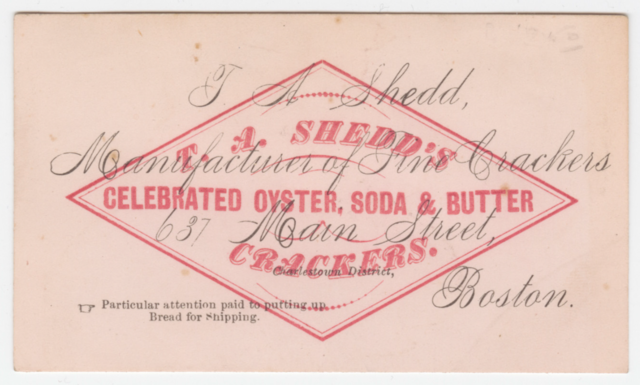 T. A. Shedd,
T. A. SHEDD'S
Manufacturer of Fine Crackers
CELEBRATED OYSTER, SODA & BUTTER
637 Main Street,
CRACKERS.
Charlestown District,
Boston.
☞ Particular attention paid to putting up
Bread for Shipping.